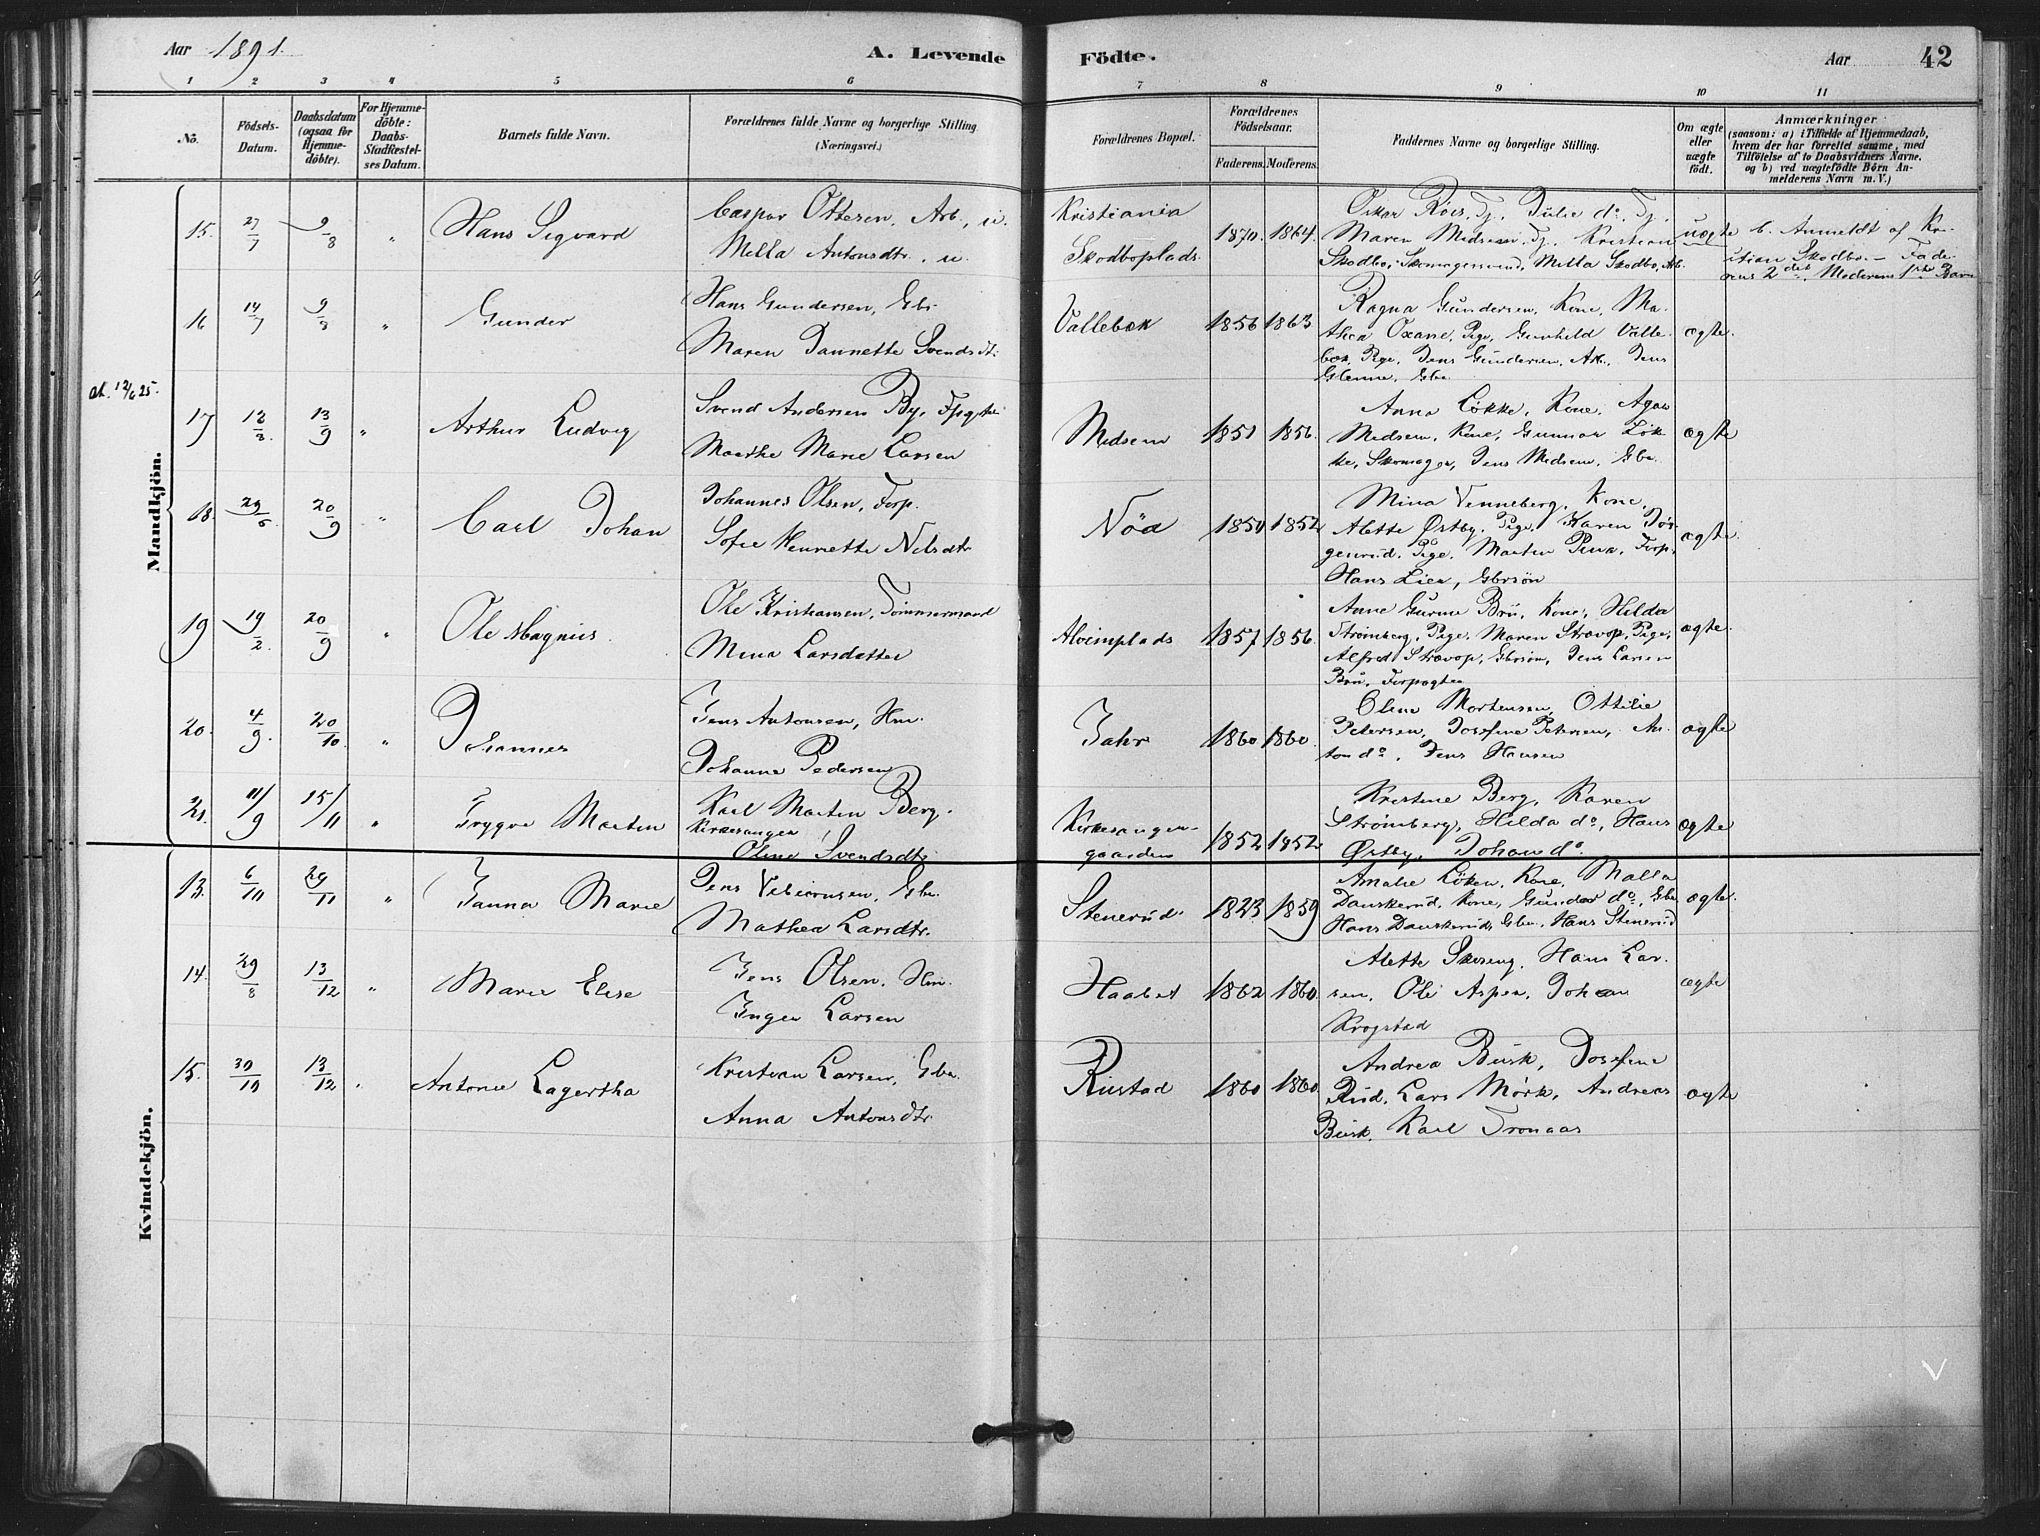 Aar 1891. A. Levende Födte. Aar 42
1 2 3 4 5 6 7 8 9 10 11
No. Födsels-Datum. Daabsdatum (ogsaa for Hjemmedöbte). For Hjemmedöbte: Daabs-Stadfæstelses Datum. Barnets fulde Navn. Forældrenes fulde Navne og borgerlige Stilling (Næringsvei.) Forældrenes Bopæl. Forældrenes Födselsaar. Faderens. Moderens. Faddernes Navne og borgerlige Stilling. Om ægte eller uægte födt. Anmærkninger (saasom: a) i Tilfælde af Hjemmedaab, hvem der har forrettet samme, med Tilföielse af to Daabsvidners Navne, og b) ved uægtefödte Börn Anmelderens Navn m. V.)
Mandkjön.
15. 27/7 9/8 " Hans Sigvard
Caspar Ottesen, Arb., u.
Milla Antonsdtr., u.
Kristiania
Skodboplads
1870. 1864.
Oskar, Tj., Julie do, Tj.,
Maren Midsem, Tj., Kristian
Skodbo, Skomagersvend, Milla Skodbo, Arb.
uægte
b. Anmeldt af Kristian Skodbo. – Faderens 2det Moderens 1ste Barn
16 14/7 9/8 " Gunder
Hans Gundersen, Gbr
Maren Dannette Svendsdtr.
Vallebæk 1856 1863
Ragna Gundersen, Kone, Ma-
thea Oxane, Pige, Gunhild Valle-
bæk, Pige, Jens Gundersen, Arb., Jens
Glenne, Gbr.
ægte.
at. 12/6 25.
17 12/8. 13/9 " Arthur Ludvig
Svend Andersen By, Fpgter
Marthe Marie Larsen
Midsem 1851 1856.
Anna Løkke, Kone, Agnes
Midsem, Kone, Gunnar Løk-
ke, Skomager, Jens Midsem, Gbr.
ægte
18. 29/6. 20/9 " Carl Johan
Johannes Olsen, Forp.
Sofie Henriette Nilsdtr
Nöd 1850 1852
Mina Venneberg, Kone,
Alette Østby, Pige, Karen Jør-
genrud, Pige, Martin, Forp.
Hans Lier, Gbrsøn
ægte
19 19/2. 20/9 " Ole Magnus.
Ole Kristiansen, Tømmermand
Mina Larsdatter
Alvimplads 1857 1856.
Anne Gurine Bru, Kone, Hilda
Strømberg, Pige, Maren Stravop, Pige,
Alfred Stravop, Gbrsøn, Jens Larsen
Bru, Forpagter
ægte.
20. 4/9. 20/10. " Johannes
Jens Antonsen, Hm.
Johanne Pedersen
Jahr 1860 1860.
Oline Mortensen, Ottilie
Petersen, Josefine Petersen, An-
ton do, Jens Hansen
ægte
21. 11/9 15/11 " Trygve Martin
Karl Martin Berg,
Kirkesanger
Oline Svendsdtr
Kirkesanger-
gaarden
1852 1852
Kristine Berg, Karen
Strømberg, Hilda do, Hans
Østby, Johan do.
ægte
Kvindekjön.
13. 6/10 29/11 " Janna Marie
Jens, Gbr.
Mathea Larsdtr.
Stenerud. 1823 1859
Amalie Løken, Kone, Malla
Danskerud, Kone, Gunder do, Gbr,
Hans Danskerud, Gbr., Hans Stenerud
ægte.
14. 29/8 13/12 " Marie Elise
Jens Olsen, Hm.
Inger Larsen
Haabet 1862 1860.
Alette Skoseng, Hans Lar-
sen, Ole Aspen, Johan
Krogstad
ægte
15. 30/10 13/12 " Antonie Lagertha
Kristian Larsen, Gbr.
Anna Antonsdtr.
Rustad 1860 1860.
Andrea Busk, Josefine
Rud, Lars Mørk, Andreas
Busk, Karl Tronaas
ægte